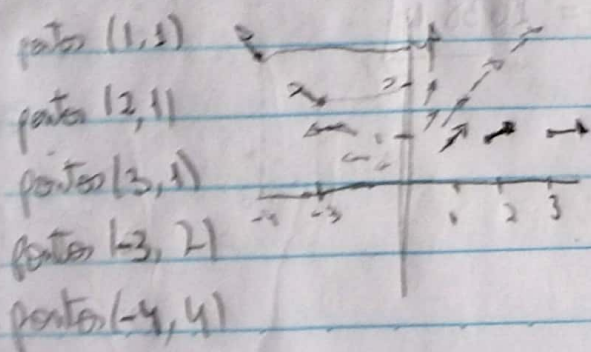 pontos (1,1)
pontos (2,1)
pontos (3,1)
pontos (-3, 2)
pontos (-4, 4)
2
1
-4 -3 1 2 3